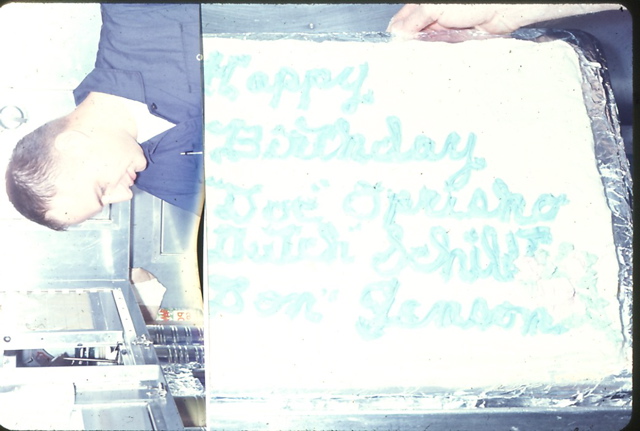 Happy
Birthday
"Doc" Oprisko
Dutch Schiltz
"Don" Janson